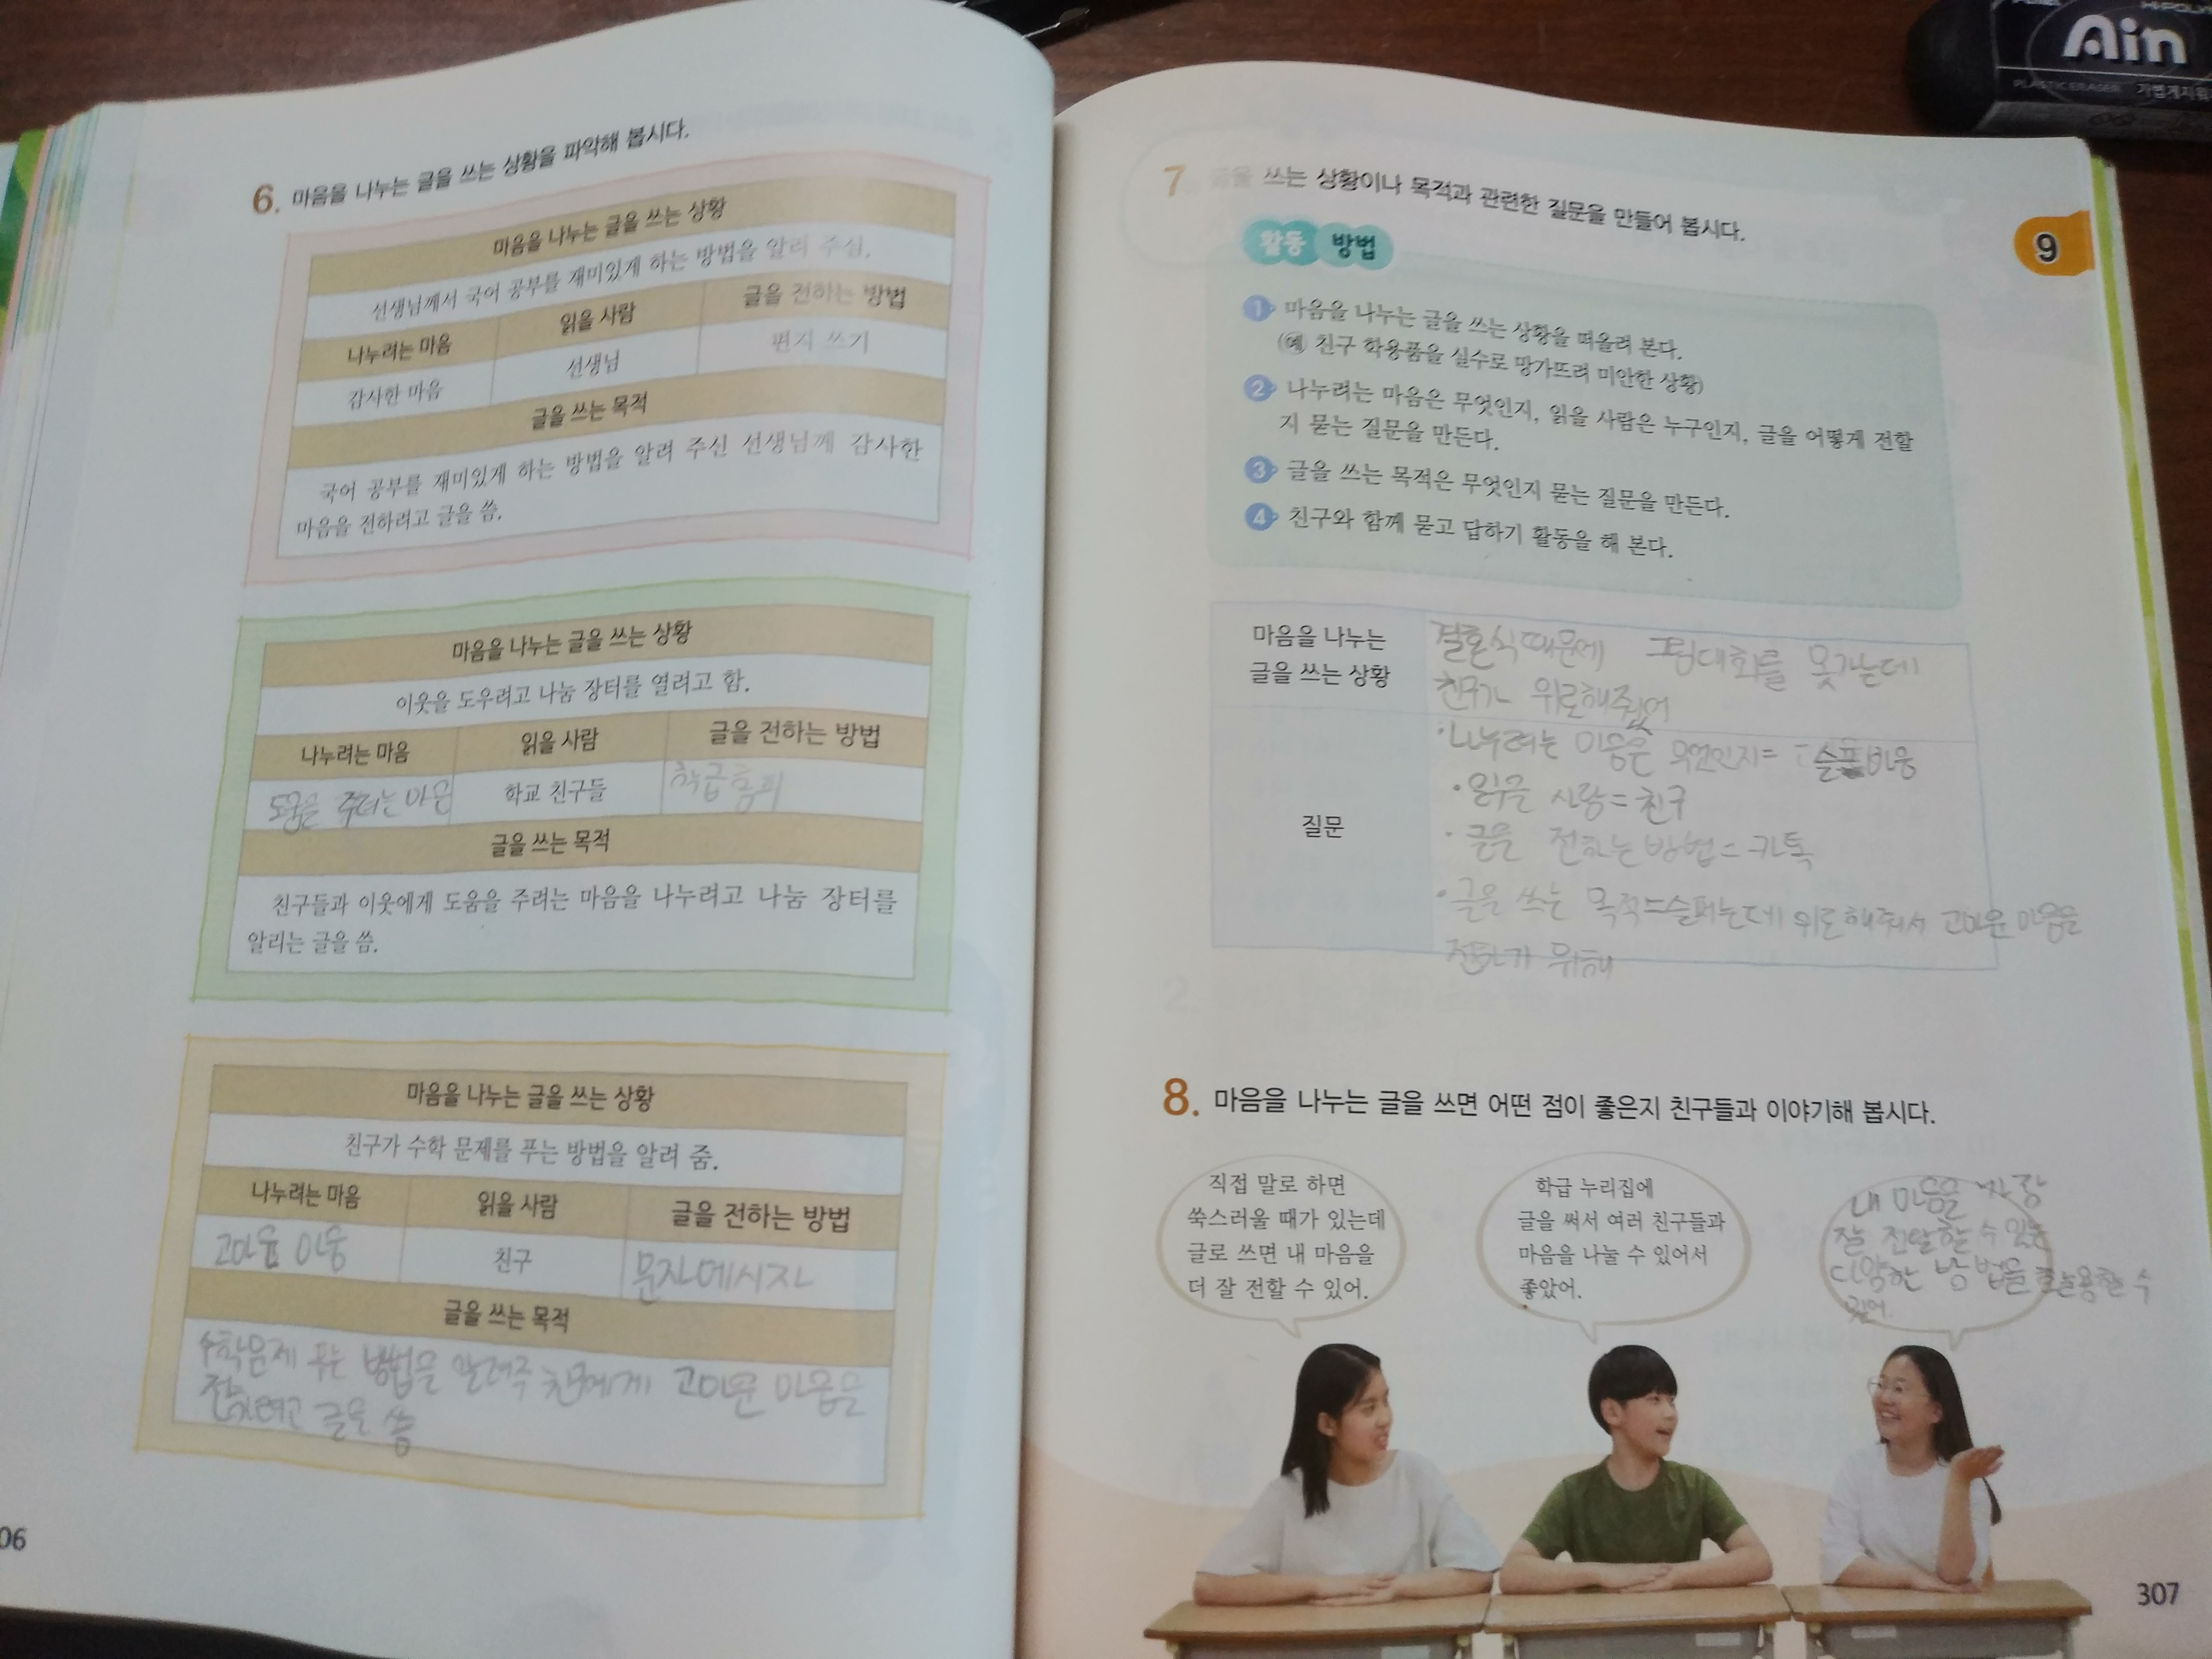 Ain
PLASTIC ERASER
6. 마음을 나누는 글을 쓰는 상황을 파악해 봅시다.
마음을 나누는 글을 쓰는 상황
선생님께서 국어 공부를 재미있게 하는 방법을 알려 주심.
나누려는 마음 읽을 사람 글을 전하는 방법
감사한 마음 선생님 편지 쓰기
글을 쓰는 목적
국어 공부를 재미있게 하는 방법을 알려 주신 선생님께 감사한
마음을 전하려고 글을 씀.
마음을 나누는 글을 쓰는 상황
이웃을 도우려고 나눔 장터를 열려고 함.
나누려는 마음 읽을 사람 글을 전하는 방법
도움을 주려는 마음 학교 친구들 학급홈피
글을 쓰는 목적
친구들과 이웃에게 도움을 주려는 마음을 나누려고 나눔 장터를
알리는 글을 씀.
마음을 나누는 글을 쓰는 상황
친구가 수학 문제를 푸는 방법을 알려 줌.
나누려는 마음 읽을 사람 글을 전하는 방법
고마움 마음 친구 문자메시지
글을 쓰는 목적
수학문제 푸는 방법을 알려주 친구에게 고마운 마음을
전하려고 글을 씀
06
7. 글을 쓰는 상황이나 목적과 관련한 질문을 만들어 봅시다.
9
활동 방법
1 마음을 나누는 글을 쓰는 상황을 떠올려 본다.
(예 친구 학용품을 실수로 망가뜨려 미안한 상황)
2 나누려는 마음은 무엇인지, 읽을 사람은 누구인지, 글을 어떻게 전할
지 묻는 질문을 만든다.
3 글을 쓰는 목적은 무엇인지 묻는 질문을 만든다.
4 친구와 함께 묻고 답하기 활동을 해 본다.
마음을 나누는
글을 쓰는 상황
결혼식때문에 그림대회를 못가는데
친구가 위로해줬어
질문
·나누려는 마음은 무엇인지=
·읽을 사람=친구
·글을 전하는방법=카톡
·글을 쓰는 목적=슬퍼는데 위로해줘서 고마운 마음을
위해
8. 마음을 나누는 글을 쓰면 어떤 점이 좋은지 친구들과 이야기해 봅시다.
직접 말로 하면
쑥스러울 때가 있는데
글로 쓰면 내 마음을
더 잘 전할 수 있어.
학급 누리집에
글을 써서 여러 친구들과
마음을 나눌 수 있어서
좋았어.
내 마음을 가장
잘 전달할 수 있는
다양한 방법을 수
있어.
307